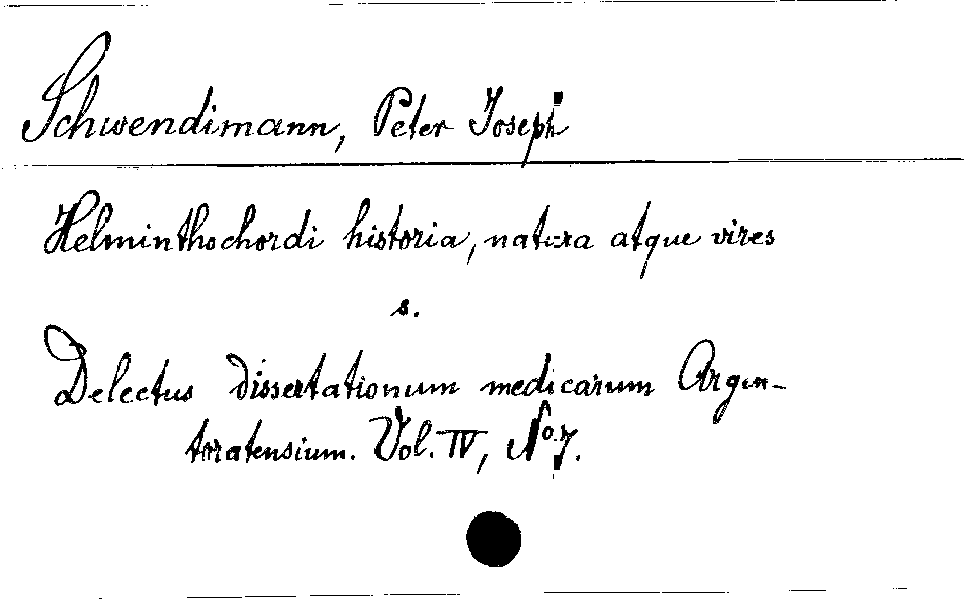 Schwendimann, Peter Joseph
Helminthochordi historia, natura atque vires
s.
Delectus dissertationum medicarum Argen-
toratensium. Vol. IV, No. 7.